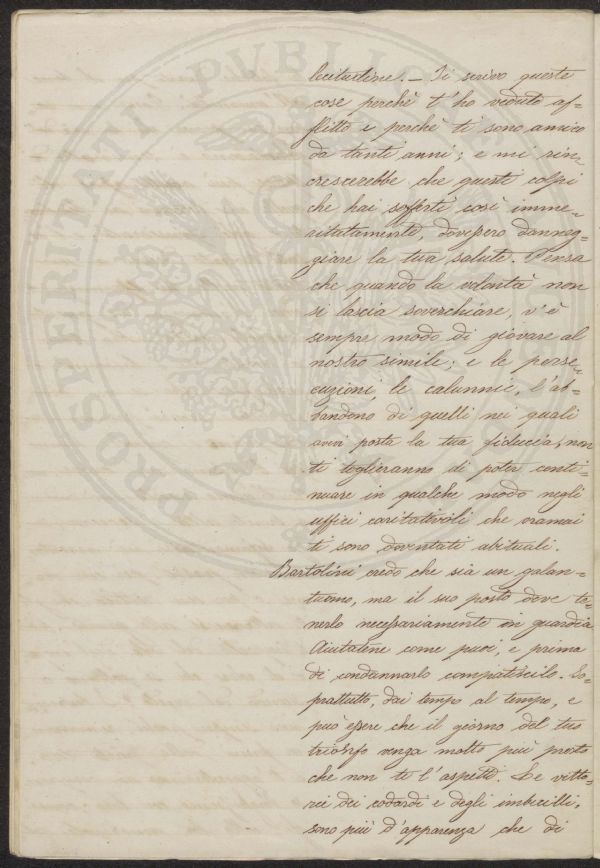 lecitatine. – Ti scrivo queste
cose perchè t'ho veduto af=
flitto e perchè ti sono amico
da tanti anni; e mi rin=
crescerebbe che questi colpi
che hai sofferti così imme=
ritatamente, dovessero danneg=
giare la tua salute. Pensa
che quando la volontà non
si lascia soverchiare, v'è
sempre modo di giovare al
nostro simile; e le perse=
cuzioni, le calunnie, l'ab=
bandono di quelli nei quali
avevi posta la tua fiducia, non
ti toglieranno di poter conti=
nuare in qualche modo negli
uffici caritatevoli che oramai
ti sono diventati abituali.
Bartolini credo che sia un galan=
tuomo, ma il suo posto deve te=
nerlo necessariamente in guardia
Aiutatene come puoi, e prima
di condannarlo compatiscilo. So=
prattutto, dai tempo al tempo, e
può essere che il giorno del tuo
trionfo venga molto più presto
che non te l'aspetti. Le vitto=
rie dei codardi e degli imbecilli,
sono più d'apparenza che di
PROSPERITATI PUBLICAE